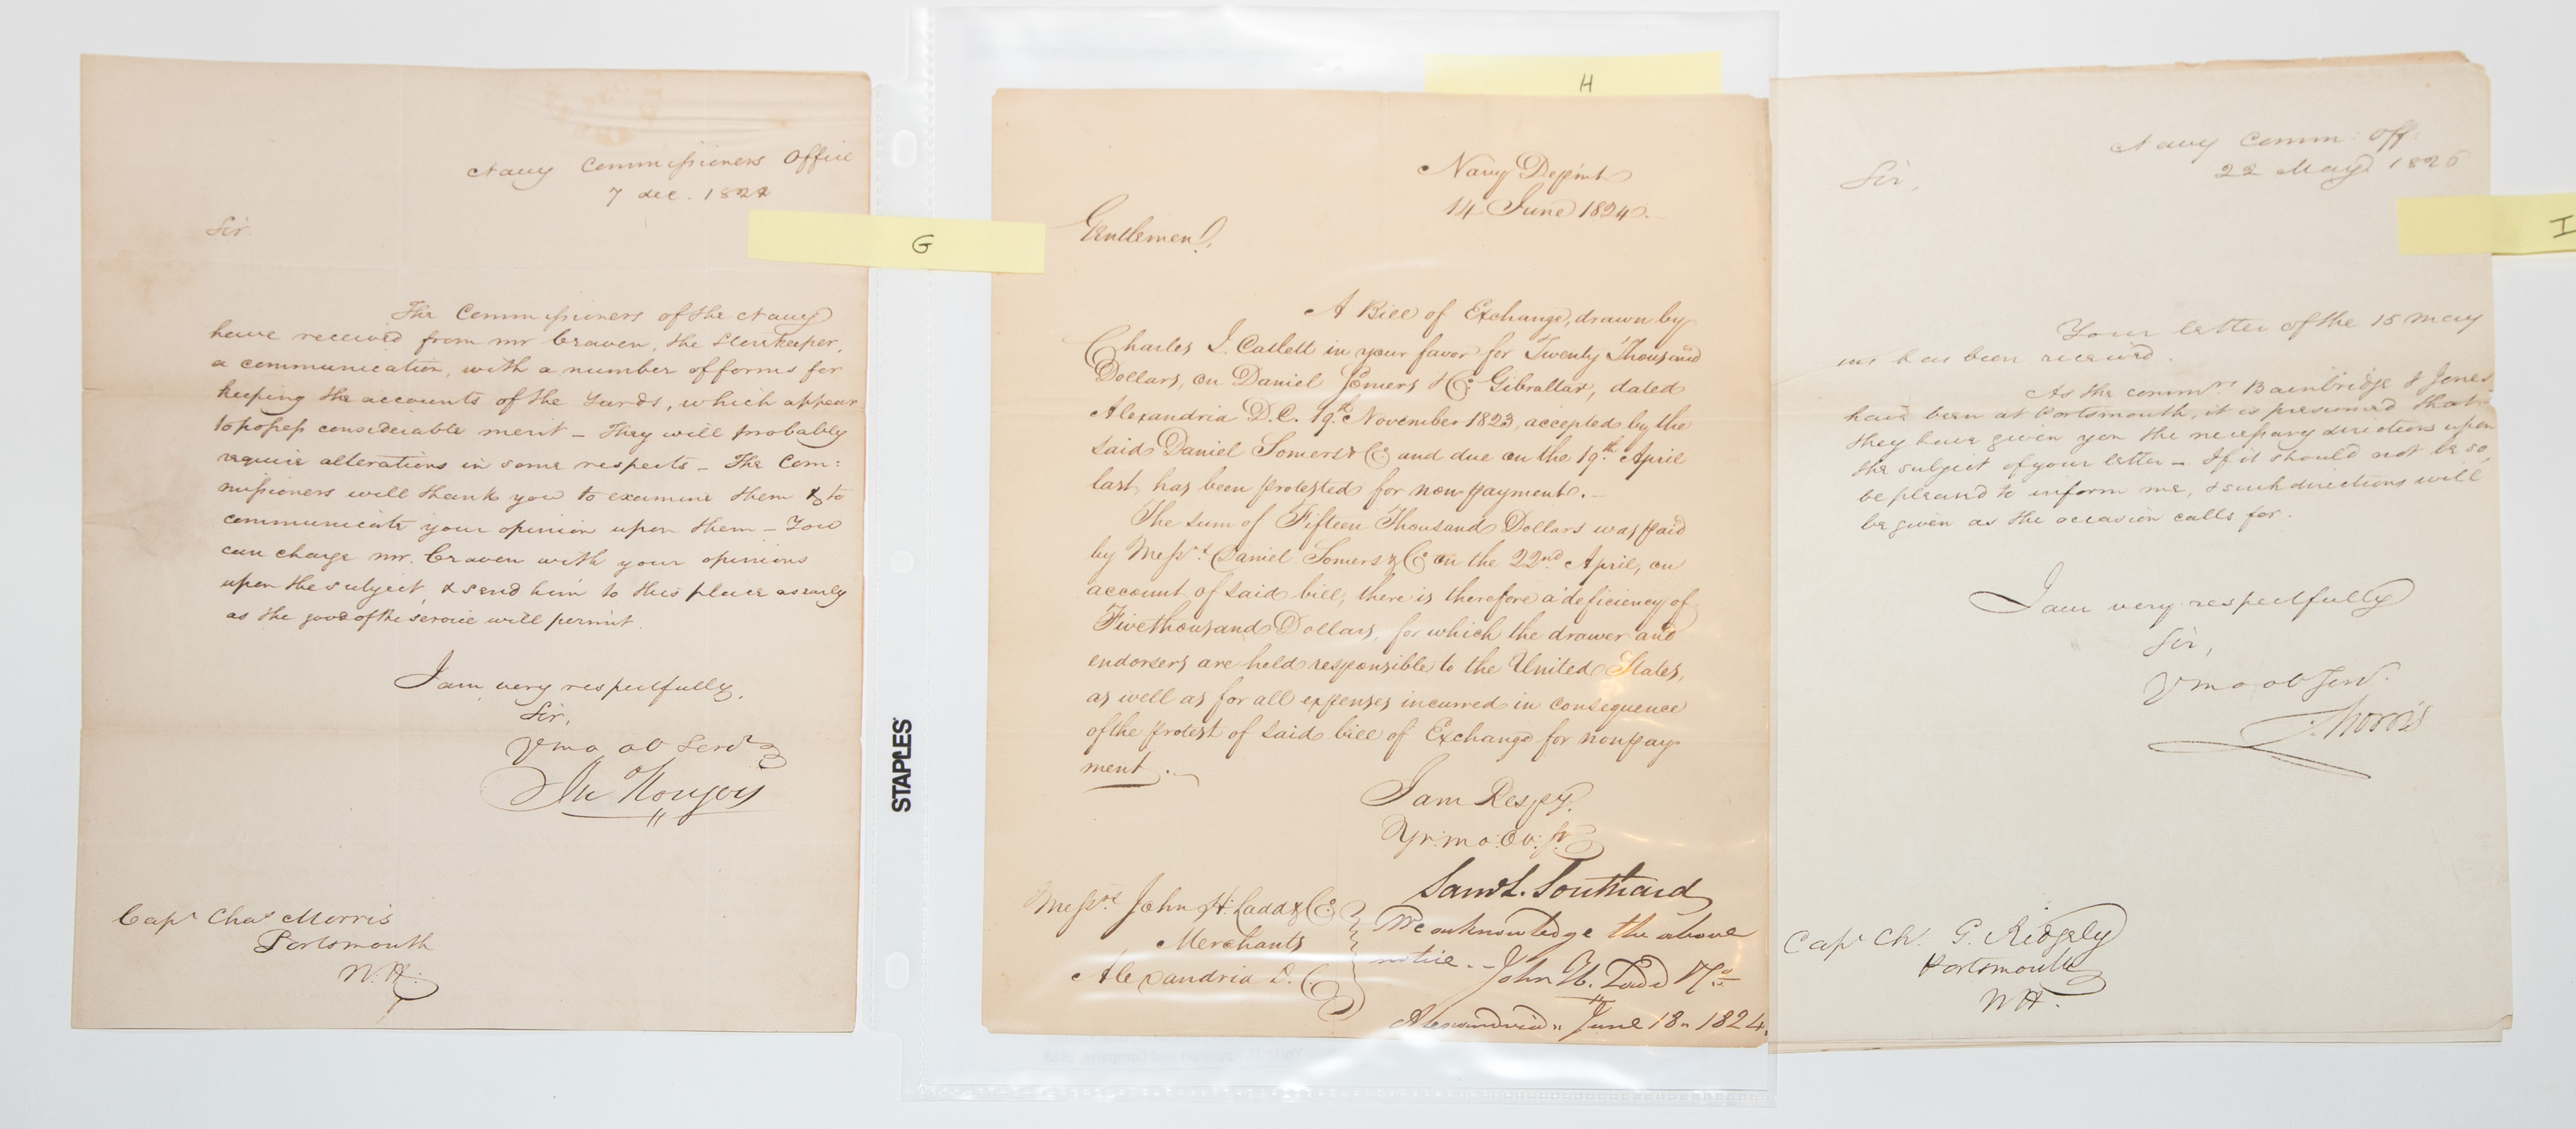 Navy Commissioners Office
7 dec. 1822
Sir.
The Commissioners of the Navy
have received from mr Craven, the Storekeeper,
a communication, with a number of forms for
keeping the accounts of the Yards, which appear
to possess considerable merit – They will probably
require alterations in some respects – The Com:
missioners will thank you to examine them & to
communicate your opinion upon them – You
can charge mr. Craven with your opinions
upon the subject, & send him to this place as early
as the good of the service will permit.
I am very respectfully,
Sir,
Yr mo ob Servt
Jn Rodgers
Capt Chas Morris
Portsmouth
N.H.
G
STAPLES
H
Navy Depmt
14 June 1824.
Gentlemen,
A Bill of Exchange, drawn by
Charles I. Catlett in your favor for Twenty Thousand
Dollars, on Daniel Somers & Co. Gibraltar, dated
Alexandria D.C. 19th November 1823, accepted by the
said Daniel Somers & Co and due on the 19th April
last, has been protested for non payment. –
The sum of Fifteen Thousand Dollars was paid
by Messrs Daniel Somers & Co on the 22nd April, on
account of said bill, there is therefore a deficiency of
Five thousand Dollars, for which the drawer and
endorsers are held responsible to the United States,
as well as for all expenses incurred in consequence
of the protest of said bill of Exchange for non pay
ment. –
I am Respy.
Yr: mo: Ob: St
Saml. L. Southard
Messrs John H. Ladd & Co.
Merchants
Alexandria D.C.
We acknowledge the above
notice. – John H. Ladd & Co
Alexandria June 18 – 1824.
I
Navy Comm: Off.
22 May 1826
Sir,
Your letter of the 15 May
has been received.
As the commrs Bainbridge & Jones
have been at Portsmouth, it is presumed that
they have given you the necessary directions upon
the subject of your letter – If it should not be so,
be pleased to inform me, & such directions will
be given as the occasion calls for.
I am very respectfully
Sir,
Yr mo ob Servt.
Morris
Capt Ch. G. Ridgely
Portsmouth
NH.